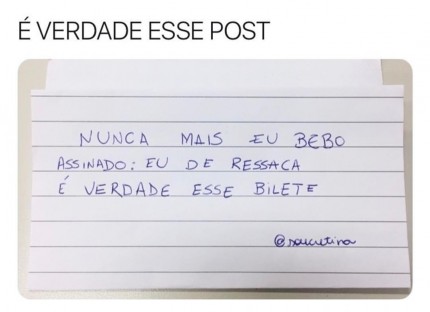 É VERDADE ESSE POST
NUNCA MAIS EU BEBO
ASSINADO: EU DE RESSACA
É VERDADE ESSE BILETE